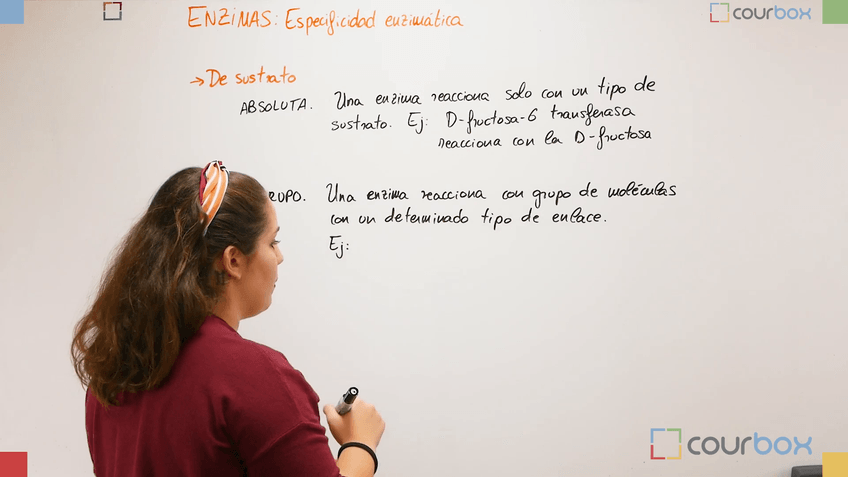 ENZIMAS: Especificidad enzimática
courbox
→ De sustrato
ABSOLUTA. Una enzima reacciona solo con un tipo de
sustrato. Ej: D-fructosa-6 transferasa
reacciona con la D-fructosa
RUPO. Una enzima reacciona con grupo de moléculas
con un determinado tipo de enlace.
Ej:
courbox